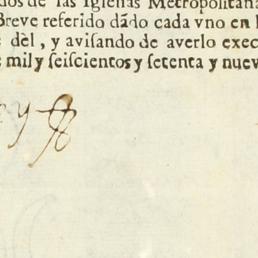 dos de las Iglesias Metropolitana
Breve referido dãdo cada vno en l
del, y avisando de averlo exec
mil y seiscientos y setenta y nuev
y